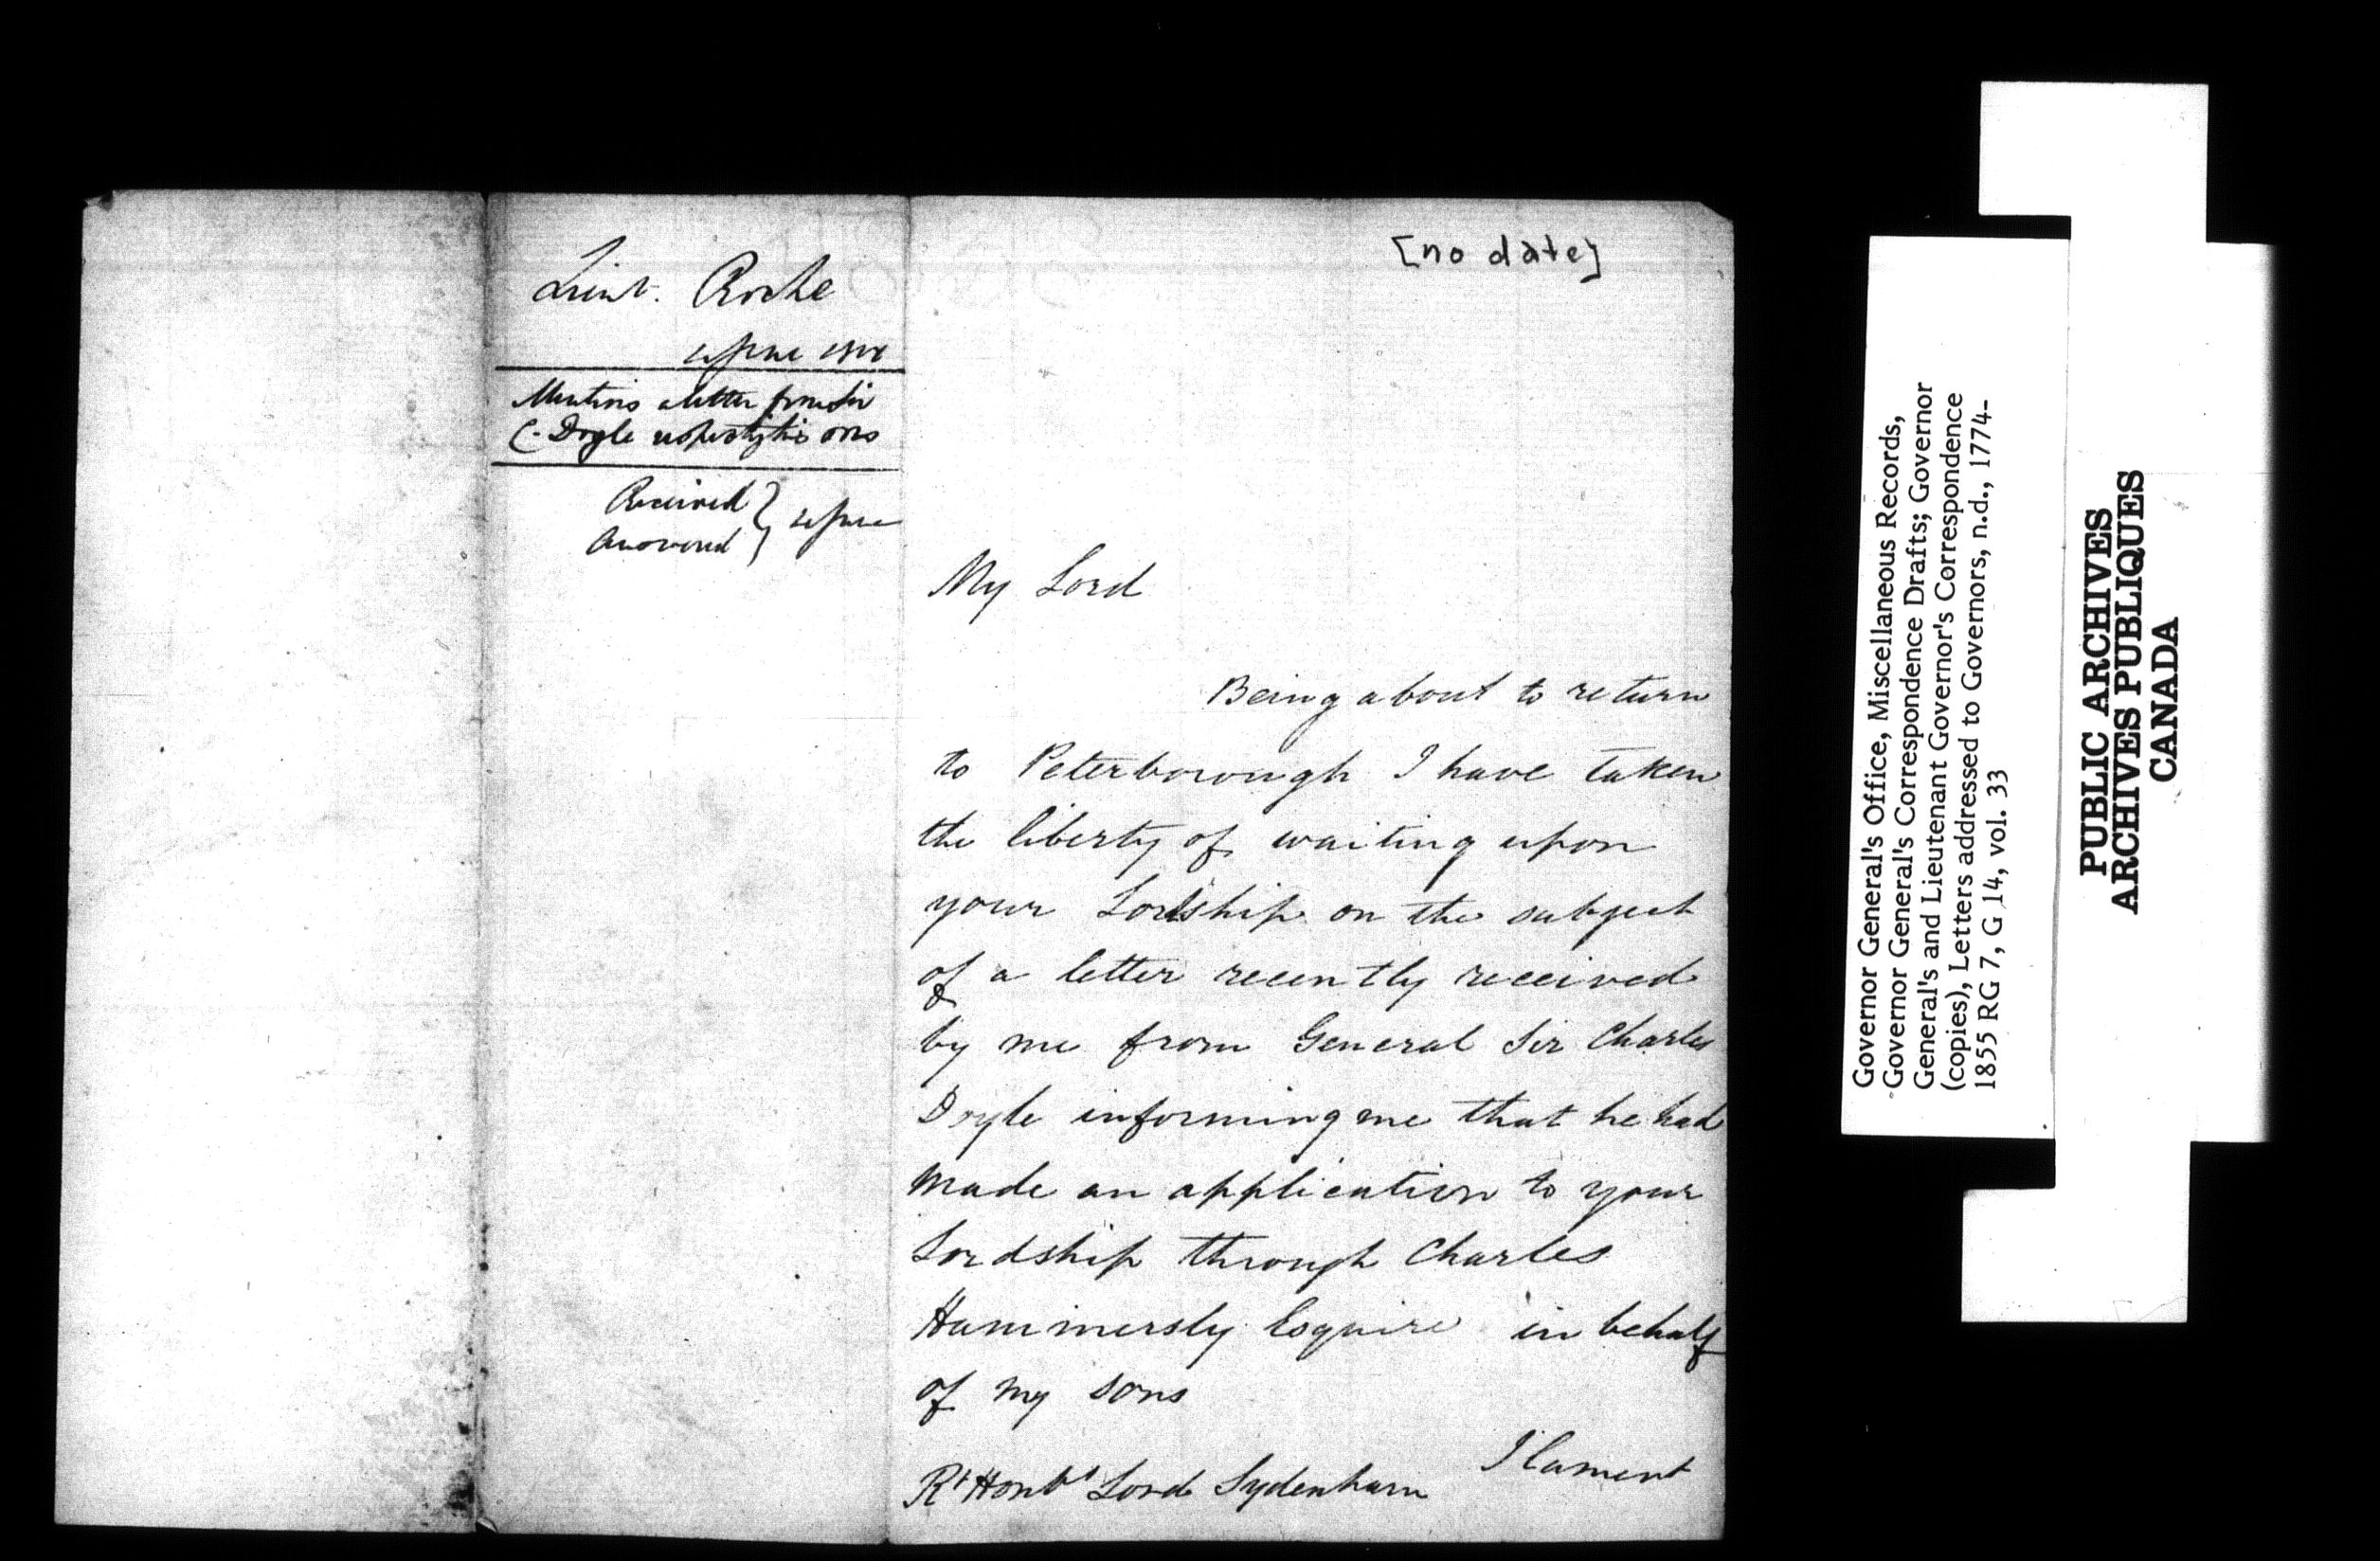 Lieut. Roche
Mentions a letter from Sir
C. Doyle respecting his sons
Received
Answered
[no date]
My Lord
Being about to return
to Peterborough I have taken
the liberty of waiting upon
your Lordship on the subject
of a letter recently received
by me from General Sir Charles
Doyle informing me that he had
made an application to your
Lordship through Charles
Hammersly Esquire in behalf
of my sons
I lament
Rt Honbl Lord Sydenham
Governor General's Office, Miscellaneous Records,
Governor General's Correspondence Drafts; Governor
General's and Lieutenant Governor's Correspondence
(copies), Letters addressed to Governors, n.d., 1774-
1855 RG 7, G 14, vol. 33
PUBLIC ARCHIVES
ARCHIVES PUBLIQUES
CANADA